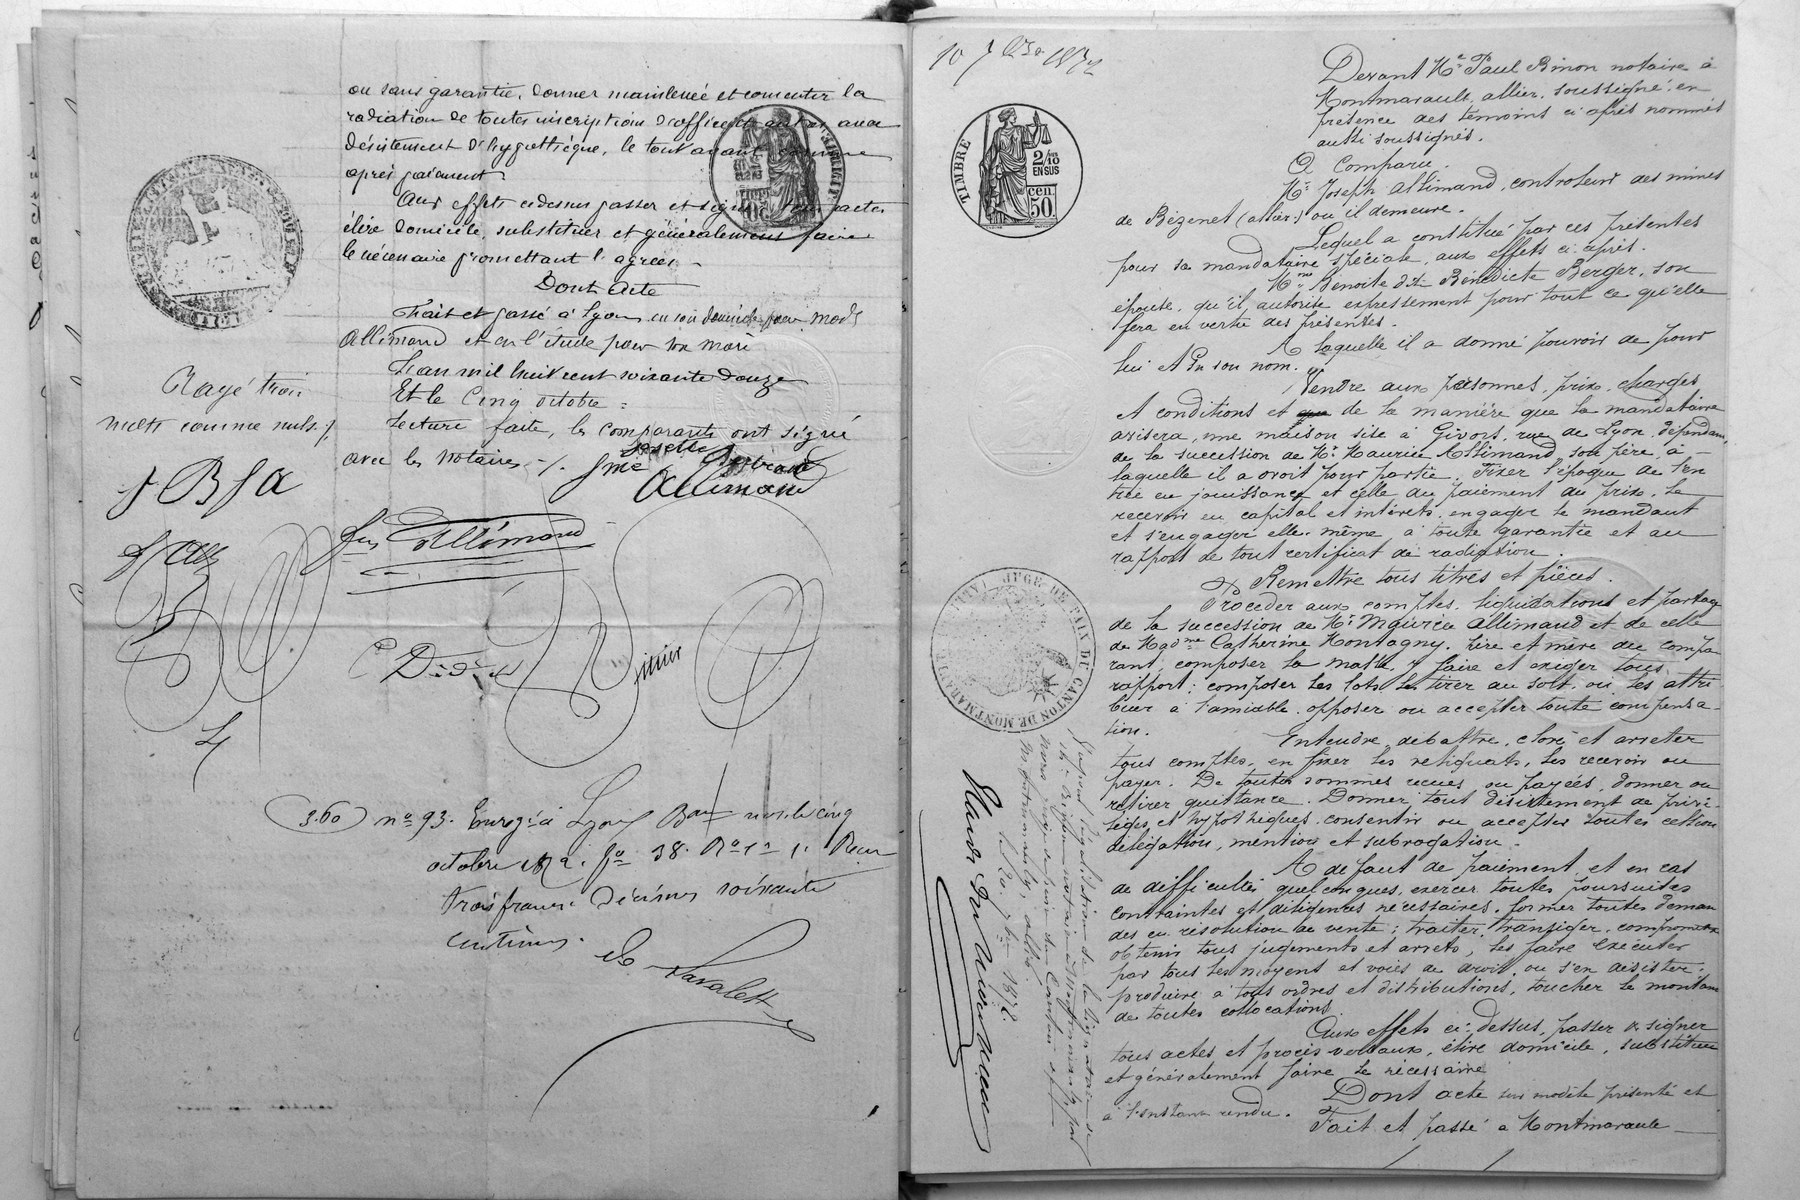 ou sans garantie, donner mainlevée et consentir la
radiation de toutes inscriptions d'office et autres avec
désistement d'hypothèque, le tout avant comme
après paiement.
Aux effets ci dessus passer et signer tous actes
élire domicile, substituer et généralement faire
le nécessaire promettant l'agréer.
Dont Acte
Fait et passé à Lyon en son domicile pour Made
Allimand et en l'étude pour son mari
L'an mil huit cent soixante douze
Et le Cinq octobre
Lecture faite, les comparants ont signé
avec les notaires
Allimand
Rayé trois
mots comme nuls
Allimand
3.60 no 93. Enregé à Lyon
octobre 1872. fo 38. Ro Reçu
trois francs. Décimes soixante
centimes.
de Lavalette
10 7bre 1872
TIMBRE
2/10 EN SUS
50 cen.
Devant Me Paul Binon notaire à
Montmarault, allier, soussigné, en
présence des témoins ci après nommés
aussi soussignés.
A Comparu.
Mr Joseph Allimand, controleur des mines
de Bézenet (allier) où il demeure.
Lequel a constitué par ces présentes
pour sa mandataire spéciale, aux effets ci après.
Mme Benoite dit Bénédicte Berger, son
épouse, qu'il autorise expressement pour tout ce qu'elle
fera en vertu des présentes.
A laquelle il a donné pouvoir de pour
lui et En son nom.
Vendre aux personnes, prix, charges
et conditions et que de la manière que la mandataire
avisera, une maison sise à Givors, rue de Lyon, dépendant
de la succession de Mr Maurice Allimand, son père, à
laquelle il a droit pour partie. Fixer l'époque de l'en
trée en jouissance et celle du paiement du prix. Le
recevoir en capital et intérêts, engager le mandant
et s'engager elle-même à toute garantie et au
rapport de tout certificat de radiation.
Remettre tous titres et pièces.
Procéder aux comptes, liquidations et partage
de la succession de Mr Maurice Allimand et de celle
de Madme Catherine Montagny, père et mère du compa
rant; composer la masse y faire et exiger tous
rapport; composer les lots les tirer au sort, ou les attri
buer à l'amiable, opposer ou accepter toute compensa-
tion.
Entendre, débattre, clore et arreter
tous comptes, en fixer les reliquats, les recevoir ou
payer. De toutes sommes reçues ou payées, donner ou
retirer quittance. Donner tout désistement de privi-
lèges et hypothèques, consentir ou accepter toutes cession
délégation, mention et subrogation.
A défaut de paiement et en cas
de difficultés quelconques, exercer toutes poursuites
contraintes et diligences nécessaires. former toutes deman
des en résolution de vente; traiter, transiger, compromettre
obtenir tous jugements et arrets, les faire exécuter
par tous les moyens et voies de droit, ou s'en désister;
produire à tous ordres et distributions, toucher le montant
de toutes collocations.
Aux effets ci-dessus, passer & signer
tous actes et procès verbaux, élire domicile, substituer
et généralement faire le nécessaire
Dont acte sur modèle présenté et
à l'instant rendu.
Fait et passé à Montmarault
JUGE DE PAIX DU CANTON DE MONTMARAULT